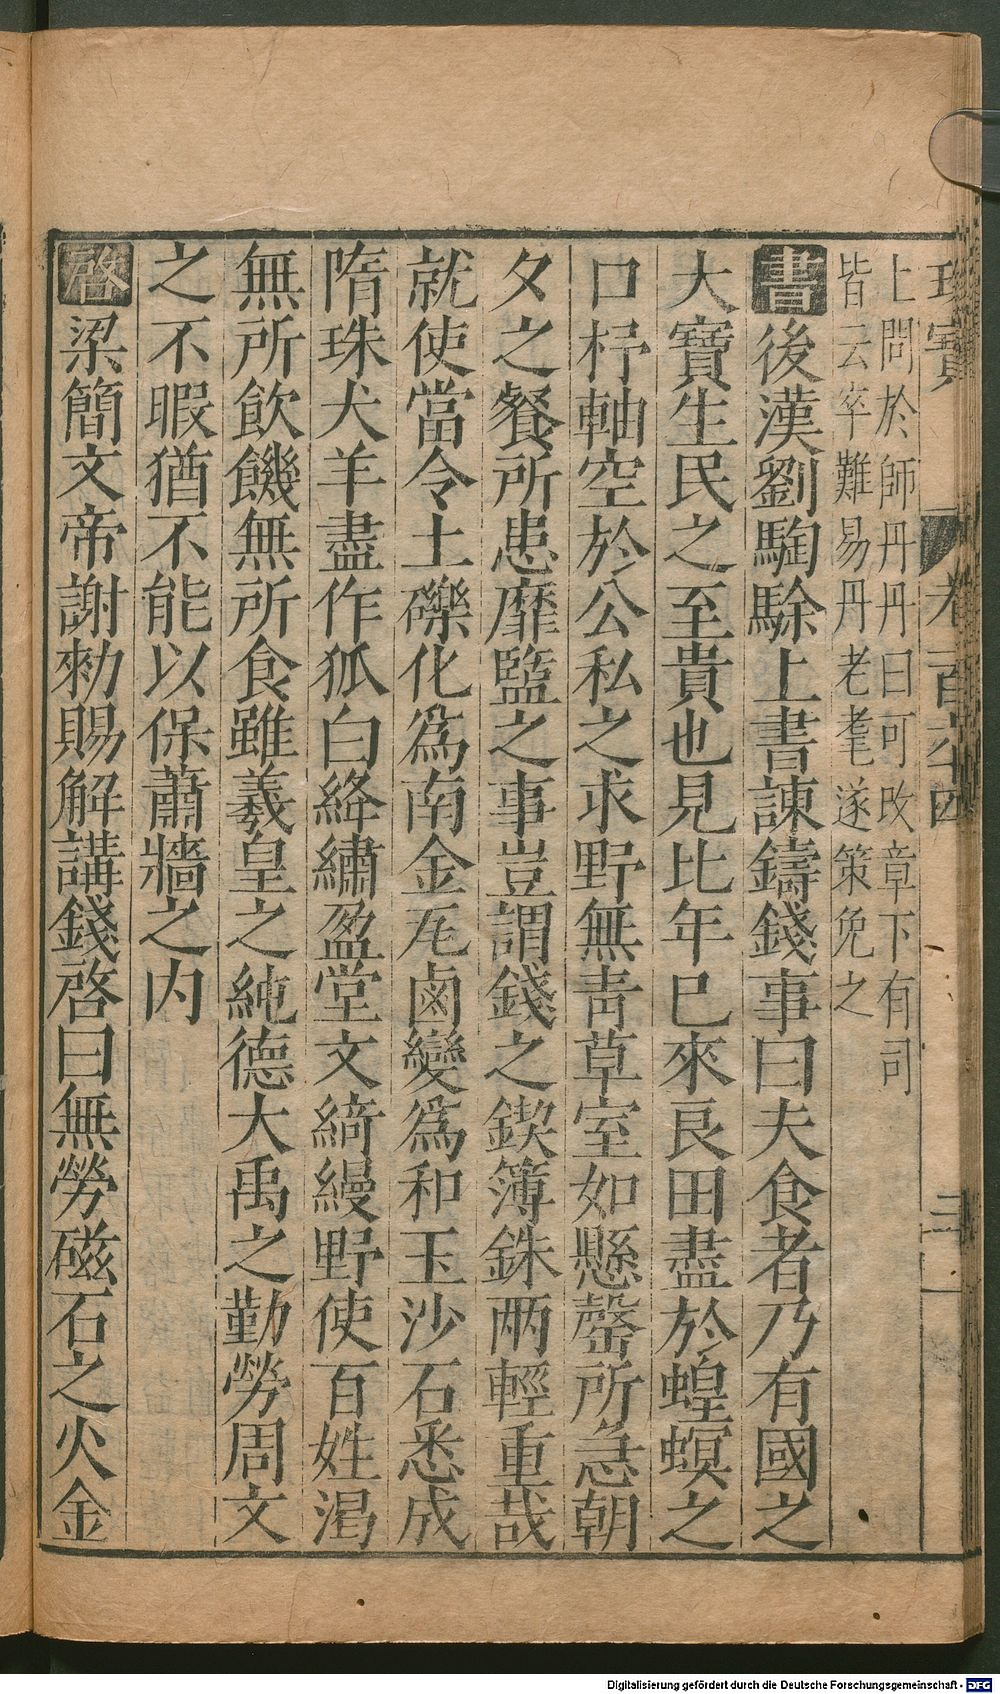 珍寶 卷一百六十四 三十一
上問於師丹丹曰可改章下有司
皆云卒難易丹老耄遂策免之
書後漢劉騊駼上書諫鑄錢事曰夫食者乃有國之
大寶生民之至貴也見比年已來良田盡於蝗螟之
口杼軸空於公私之求野無青草室如懸罄所急朝
夕之餐所患靡盬之事豈謂錢之鍥簿銖兩輕重哉
就使當令土礫化爲南金瓦鹵變爲和玉沙石悉成
隋珠犬羊盡作狐白絳繡盈堂文綺縵野使百姓渴
無所飲饑無所食雖羲皇之純德大禹之勤勞周文
之不暇猶不能以保蕭牆之内
啓梁簡文帝謝勑賜解講錢啓曰無勞磁石之火金
Digitalisierung gefördert durch die Deutsche Forschungsgemeinschaft - DFG